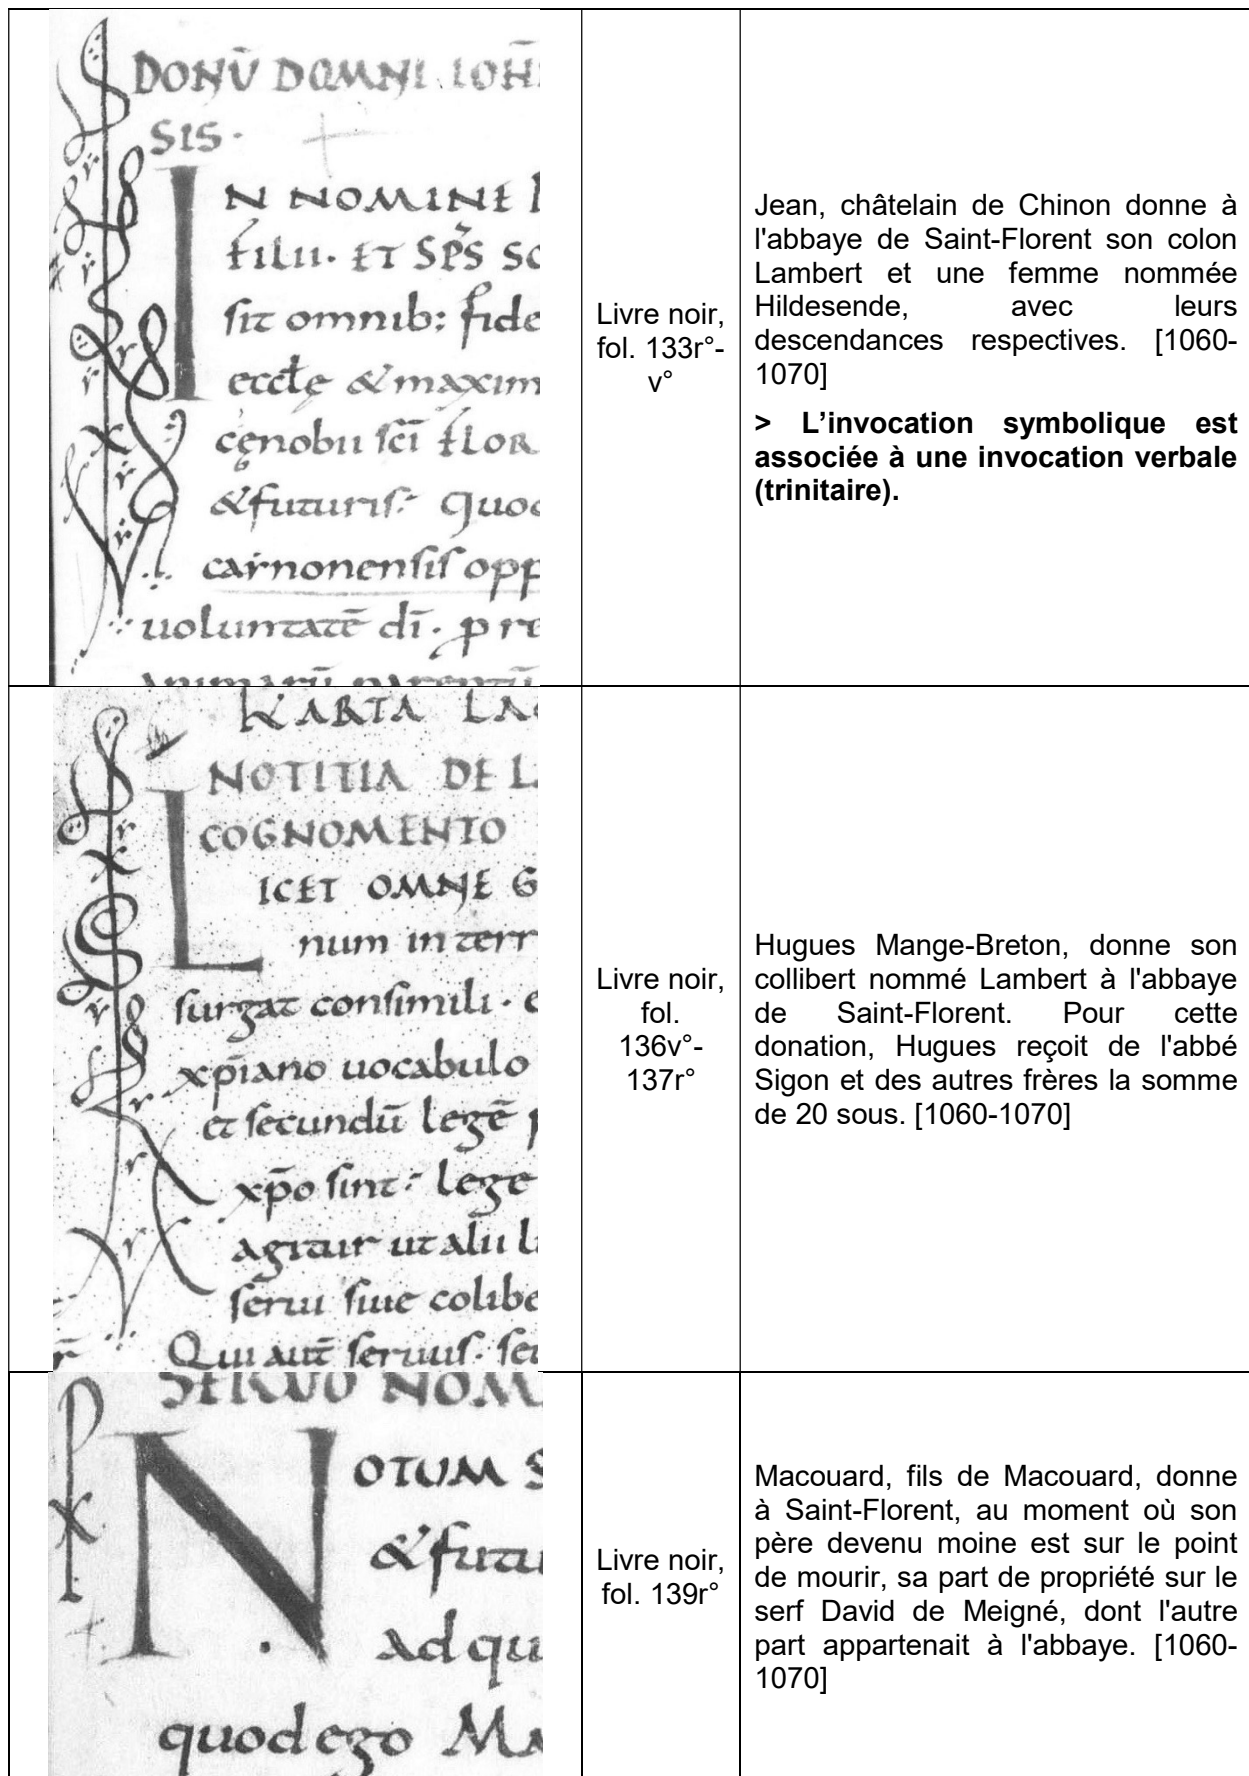 DONŪ DOMNI IOHĪ
SIS·
IN NOMINE
filii· ET SPS SC
sit omnib: fide
eccłę & maxim
cęnobii sci FLOR
& futuris· Quod
caynonensis opp
uoluntatē di· pre
animarū parentū
Livre noir,
fol. 133r°-
v°
Jean, châtelain de Chinon donne à
l'abbaye de Saint-Florent son colon
Lambert et une femme nommée
Hildesende, avec leurs
descendances respectives. [1060-
1070]
> L’invocation symbolique est
associée à une invocation verbale
(trinitaire).
KARTA LA
NOTITIA DE L
COGNOMENTO
LICET OMNE G
num in terr
surgat consimili· e
xp̄iano uocabulo
et secundū legē p
xp̄o sint· lege
agitur ut alii li
serui siue colibe
Qui aut̄ seruus· ser
Livre noir,
fol.
136v°-
137r°
Hugues Mange-Breton, donne son
collibert nommé Lambert à l'abbaye
de Saint-Florent. Pour cette
donation, Hugues reçoit de l'abbé
Sigon et des autres frères la somme
de 20 sous. [1060-1070]
SERVO NOM
NOTUM S
& futu
ad qu
quod ego Ma
Livre noir,
fol. 139r°
Macouard, fils de Macouard, donne
à Saint-Florent, au moment où son
père devenu moine est sur le point
de mourir, sa part de propriété sur le
serf David de Meigné, dont l'autre
part appartenait à l'abbaye. [1060-
1070]